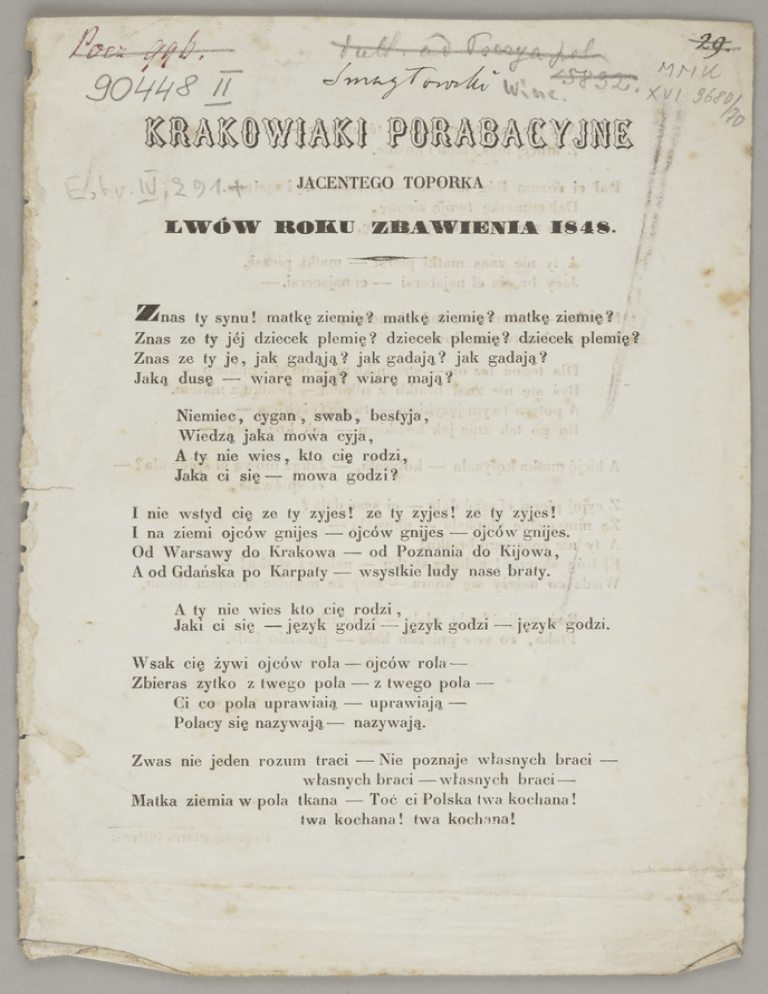 Pocz 996.
29.
Smagłowski Winc.
25892.
90448 II
MNK
XVI 9680/70
KRAKOWIAKI PORABACYJNE
Estr. IV, 291+
JACENTEGO TOPORKA
LWÓW ROKU ZBAWIENIA 1848.
Znas ty synu! matkę ziemię? matkę ziemię? matkę ziemię?
Znas ze ty jéj dziecek plemię? dziecek plemię? dziecek plemię?
Znas ze ty je, jak gadąją? jak gadają? jak gadają?
Jaką dusę — wiarę mają? wiarę mają?
Niemiec, cygan, swab, bestyja,
Wiedzą jaka mowa cyja,
A ty nie wies, kto cię rodzi,
Jaka ci się — mowa godzi?
I nie wstyd cię ze ty zyjes! ze ty zyjes! ze ty zyjes!
I na ziemi ojców gnijes — ojców gnijes — ojców gnijes.
Od Warsawy do Krakowa — od Poznania do Kijowa,
A od Gdańska po Karpaty — wsystkie ludy nase braty.
A ty nie wies kto cię rodzi,
Jaki ci się — język godzi — język godzi — język godzi.
Wsak cię żywi ojców rola — ojców rola —
Zbieras zytko z twego pola — z twego pola —
Ci co pola uprawiaią — uprawiają —
Polacy się nazywają — nazywają.
Zwas nie jeden rozum traci — Nie poznaje własnych braci —
własnych braci — własnych braci —
Matka ziemia w pola tkana — Toć ci Polska twa kochana!
twa kochana! twa kochana!